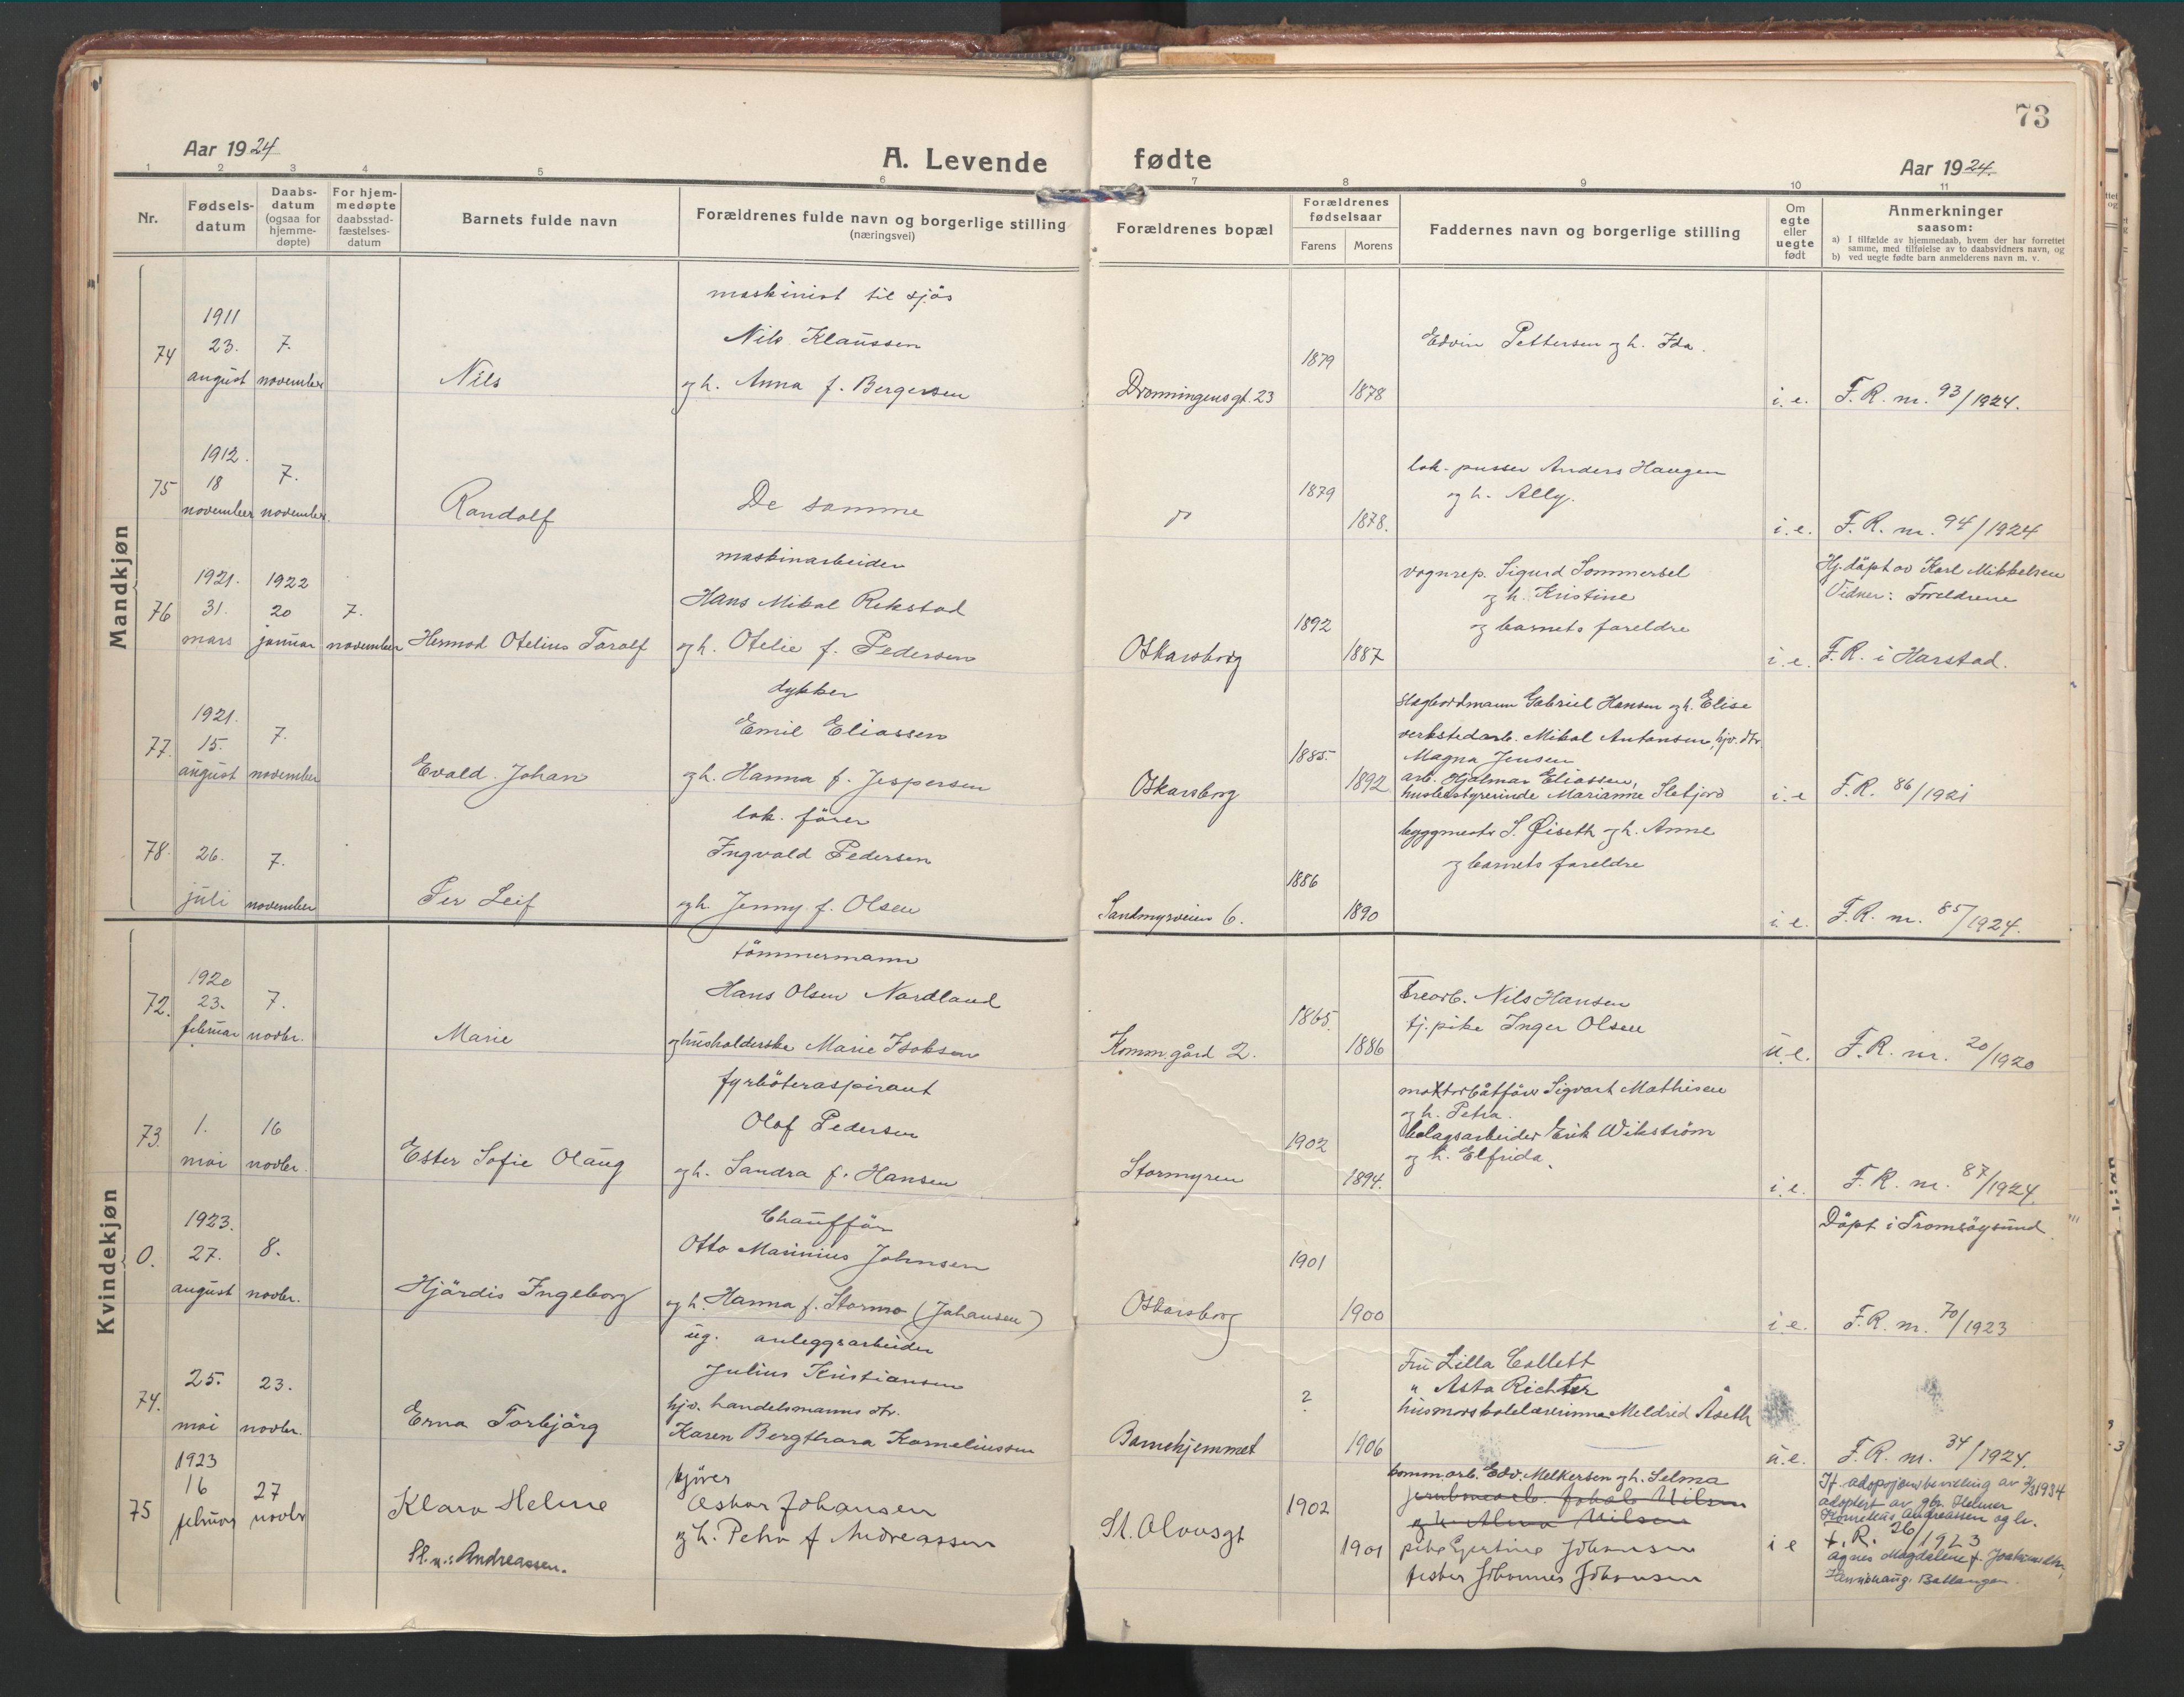 73
Aar 1924
A. Levende fødte
Aar 1924.
1 2 3 4 5 6 7 8 9 10 11
Nr.
Fødsels-
datum
Daabs-
datum
(ogsaa for
hjemme-
døpte)
For hjem-
medøpte
daabsstad-
fæstelses-
datum
Barnets fulde navn
Forældrenes fulde navn og borgerlige stilling
(næringsvei)
Forældrenes bopæl
Forældrenes
fødselsaar
Farens Morens
Faddernes navn og borgerlige stilling
Om
egte
eller
uegte
født
Anmerkninger
saasom:
a) I tilfælde av hjemmedaab, hvem der har forrettet
samme, med tilføielse av to daabsvidners navn, og
b) ved uegte fødte barn anmelderens navn m. v.
Mandkjøn
74
1911
23.
august
7.
november
Nils
maskinist til sjøs
Nils Klaussen
og h. Anna f. Bergersen
Dronningensgt. 23
1879
1878
Edvin Pettersen og h. Ida.
i. e.
F. R. nr. 93/1924.
75
1912.
18
november
7.
november.
Randolf
De samme
do
1879
1878.
lok. pusser Anders Haugen
og h. Ally.
i. e.
F. R. nr. 94/1924
76
1921.
31.
mars
1922
20
januar
7.
november
Hermod Otelius Toralf
maskinarbeider
Hans Mikal Rekstad
og h. Otelie f. Pedersen
Oskarsborg
1892
1887
vognrep. Sigurd Sommersel
og h. Kristine
og barnets foreldre
i. e.
Hj. døpt av Karl Mikkelsen
Vidner: Foreldrene
F. R. i Harstad.
77.
1921.
15.
august
7.
november
Evald Johan
dykker
Emil Eliassen
og h. Hanna f. Jespersen
Oskarsborg
1885.
1892
Slagbordmann Gabriel Hansen og h. Elise
verkstedarb. Mikal Antonsen, hjv. dtr.
Magna Jensen
arb. Hjalmar Eliassen,
husbestyrerinde Marianne Sletjord
i. e
F. R. 86/1921
78.
26.
juli
7.
november
Per Leif
lok. fører
Ingvald Pedersen
og h. Jenny f. Olsen
Sandmyrveien 6.
1886
1890
byggmester S. Øiseth og h. Anne
og barnets foreldre
i. e.
F. R. nr. 85/1924.
Kvindekjøn
72.
1920
23.
februar
7.
novbr.
Marie
tømmermann
Hans Olsen Nordland
og husholderske Marie Isaksen
Komm. gård 2.
1865.
1886
Trearb. Nils Hansen
tj. pike Inger Olsen
u. e.
F. R. nr. 20/1920
73.
1.
mai
16
novbr.
Ester Sofie Olaug
fyrbøteraspirant
Olaf Pedersen
og h. Sandra f. Hansen
Stormyren
1902
1894.
motorbåtfører Sigvart Mathisen
og h. Petra.
bolagsarbeider Erik Wikström
og h. Elfrida.
i. e.
F. R. nr. 87/1924
0.
1923.
27.
august
8.
novbr.
Hjördis Ingeborg
Chauffør
Otto Marinius Johnsen
og h. Hanna f. Stormo (Johansen)
Oskarsborg
1901
1900
i. e.
Døpt i Tromsøysund.
F. R. nr. 70/1923
74.
25.
mai
23.
novbr.
Erna Torbjörg
ug. anleggsarbeider
Julius Kristiansen
hjv. handelsmanns dtr.
Karen Bergthora Korneliussen
Barnehjemmet
?
1906
Fru Lilla Collett
" Asta Richter
husmorskolelærerinne Meldrid Åseth
u. e.
F. R. nr. 34/1924.
75
1923
16
februar
27
novbr
Klara Helene
Sl. n.: Andreassen.
kjører
Oskar Johansen
og h. Petra f Andreassen
St. Olavsgt
1902
1901
komm. arb. Edv. Melkersen og h. Selma
jernbanearb. Jakob Nilsen
og h. Nilsen
pike Gjertine Johansen
fisker Johannes Johansen
i e
If. adopsjonsbevilling av 2/3 1934
adoptert av gbr. Helmer
Kornelius Andreassen og h.
F. R. 26/1923
Agnes Magdalene f. Joakimsdtr.,
Ballangen.